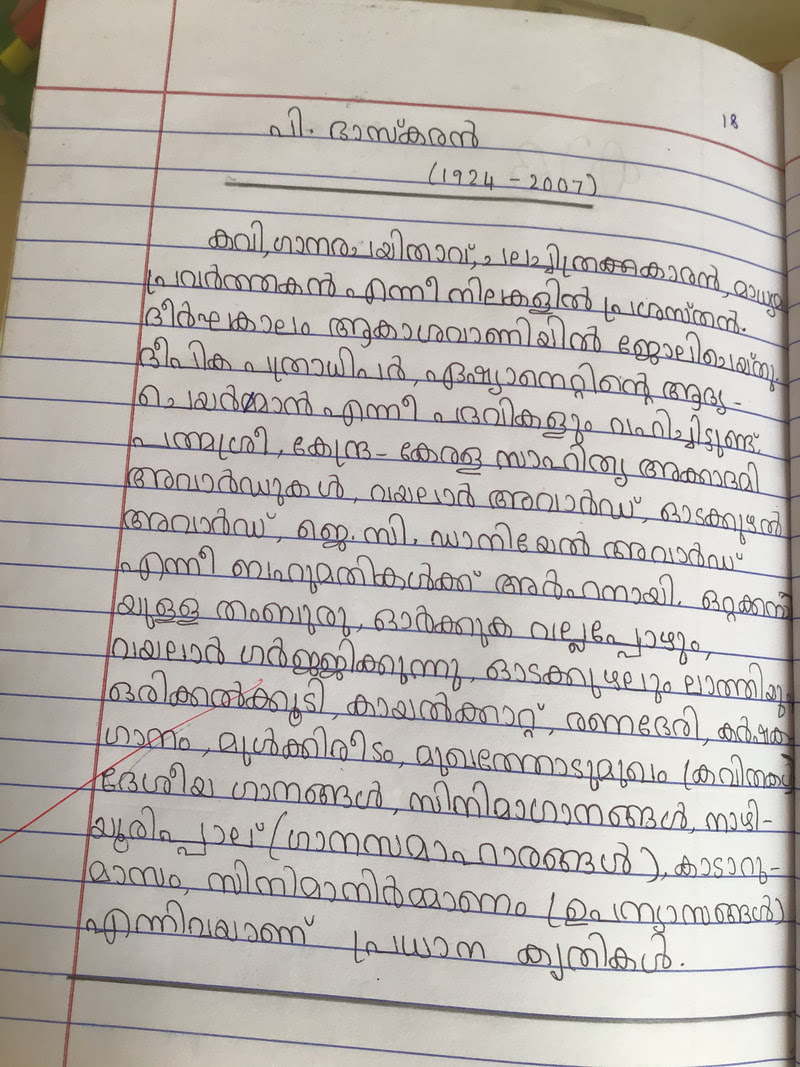 18
പി. ഭാസ്കരൻ
(1924 - 2007)
കവി, ഗാനരചയിതാവ്, ചലച്ചിത്രകാരൻ, മാധ്യമ
പ്രവർത്തകൻ എന്നീ നിലകളിൽ പ്രശസ്തൻ.
ദീർഘകാലം ആകാശവാണിയിൽ ജോലിചെയ്തു.
ദീപിക പത്രാധിപർ, ഏഷ്യാനെറ്റിന്റെ ആദ്യ-
ചെയർമാൻ എന്നീ പദവികളും വഹിച്ചിട്ടുണ്ട്.
പത്മശ്രീ, കേന്ദ്ര - കേരള സാഹിത്യ അക്കാദമി
അവാർഡുകൾ, വയലാർ അവാർഡ്, ഓടക്കുഴൽ
അവാർഡ്, ജെ.സി. ഡാനിയേൽ അവാർഡ്
എന്നീ ബഹുമതികൾക്ക് അർഹനായി. ഒറ്റക്കമ്പി
യുള്ള തംബുരു, ഓർക്കുക വല്ലപ്പോഴും,
വയലാർ ഗർജ്ജിക്കുന്നു, ഓടക്കുഴലും ലാത്തിയും
ഒരിക്കൽക്കൂടി, കായൽക്കാറ്റ്, രണഭേരി, കർഷക
ഗാനം, മുൾക്കിരീടം, മുഖത്തോടുമുഖം (കവിതകൾ)
ദേശീയ ഗാനങ്ങൾ, സിനിമാഗാനങ്ങൾ, നാഴി-
യുരിപ്പാല് (ഗാനസമാഹാരങ്ങൾ), കാടാറു-
മാസം, സിനിമാനിർമ്മാണം (ഉപന്യാസങ്ങൾ)
എന്നിവയാണ് പ്രധാന കൃതികൾ.